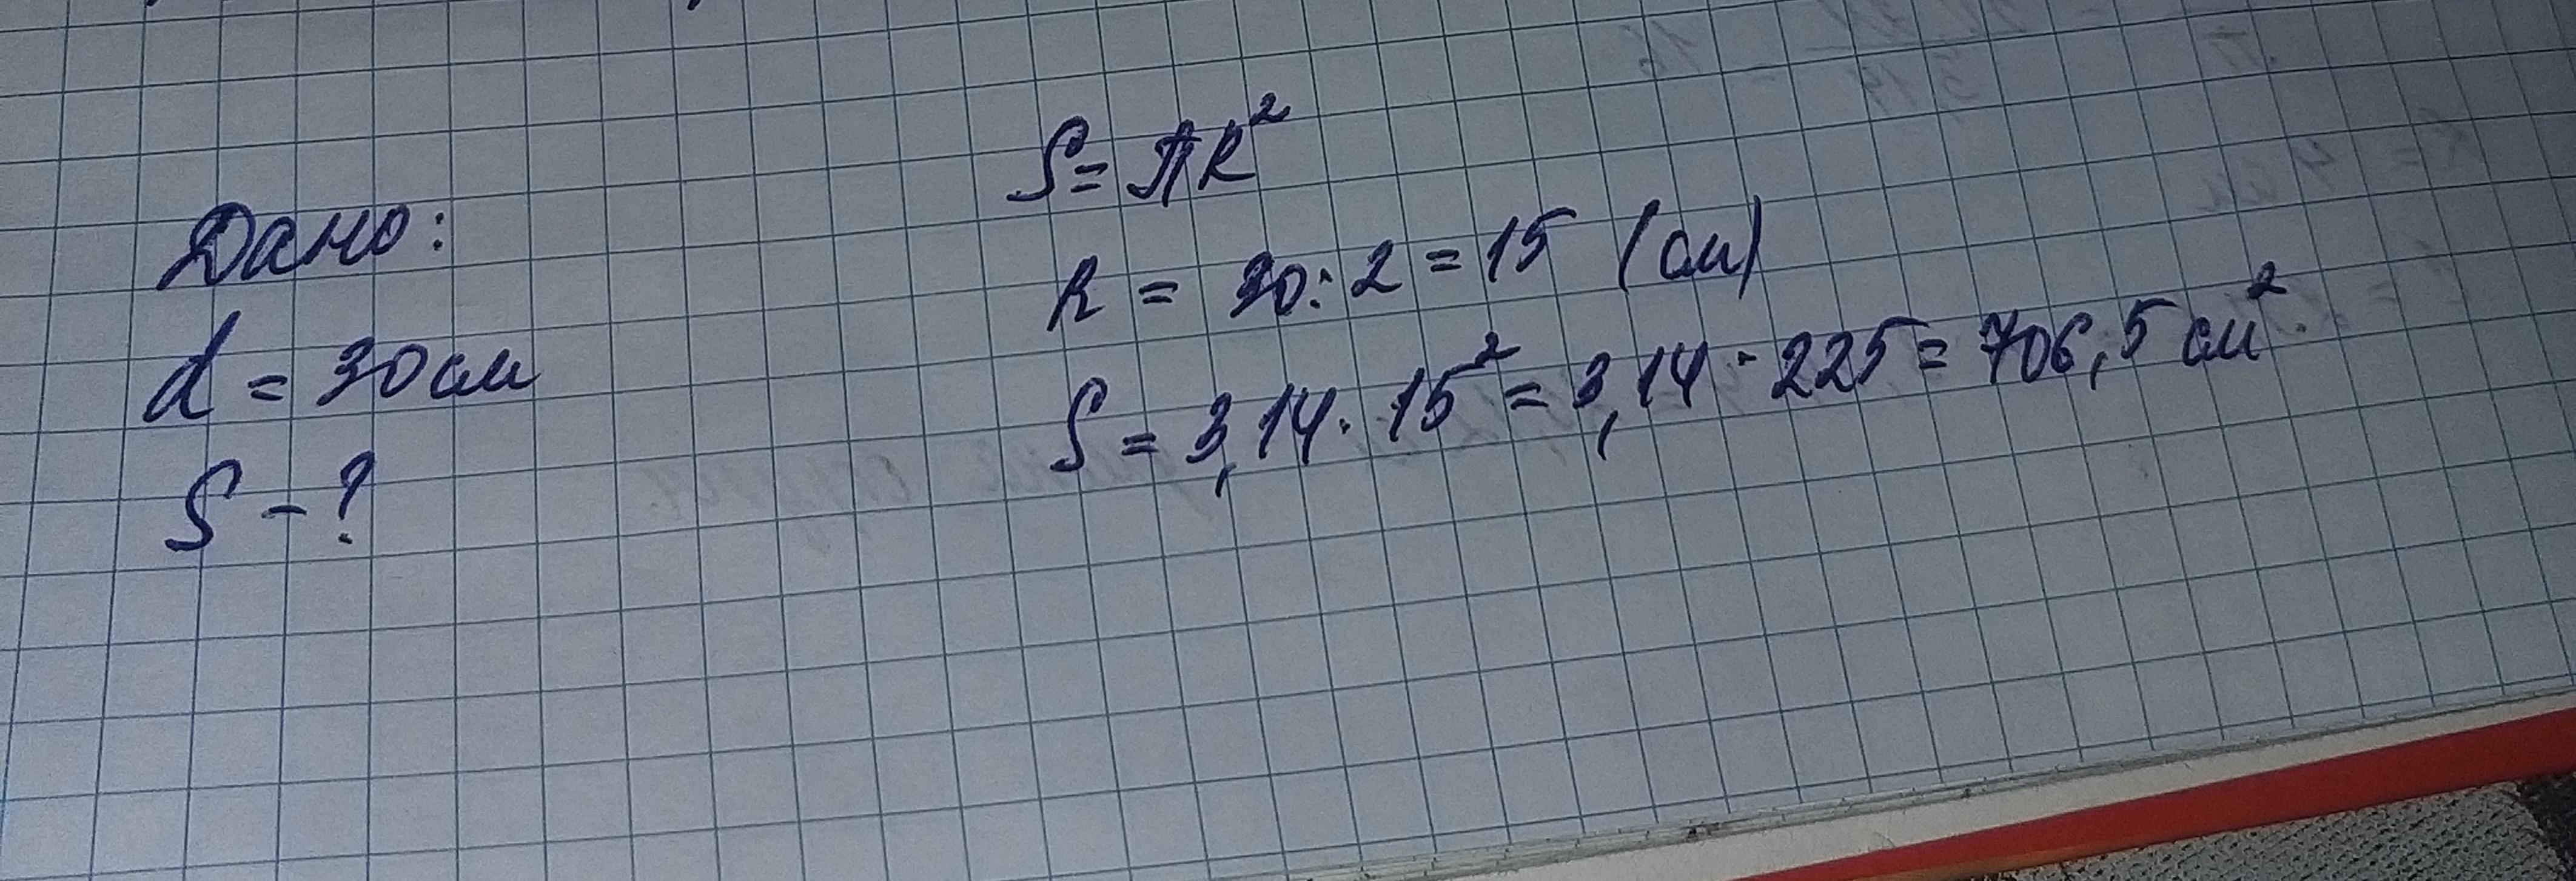 Дано:
d = 30 см
S - ?
S = πR²
R = 30 : 2 = 15 (см)
S = 3,14 · 15² = 3,14 · 225 = 706,5 см².